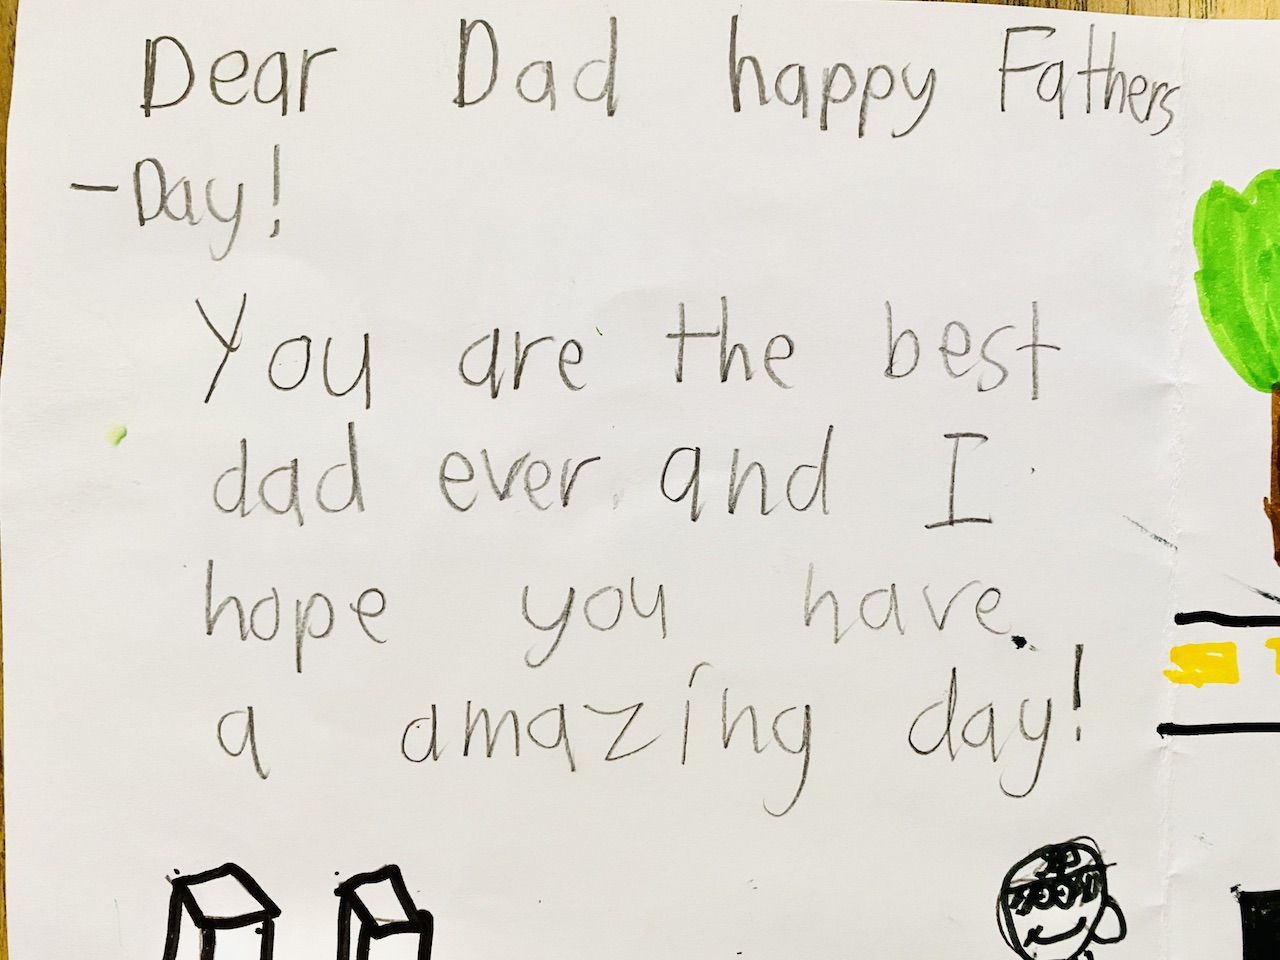 Dear Dad happy Fathers
-Day!
You are the best
dad ever and I
hope you have
a amazing day!